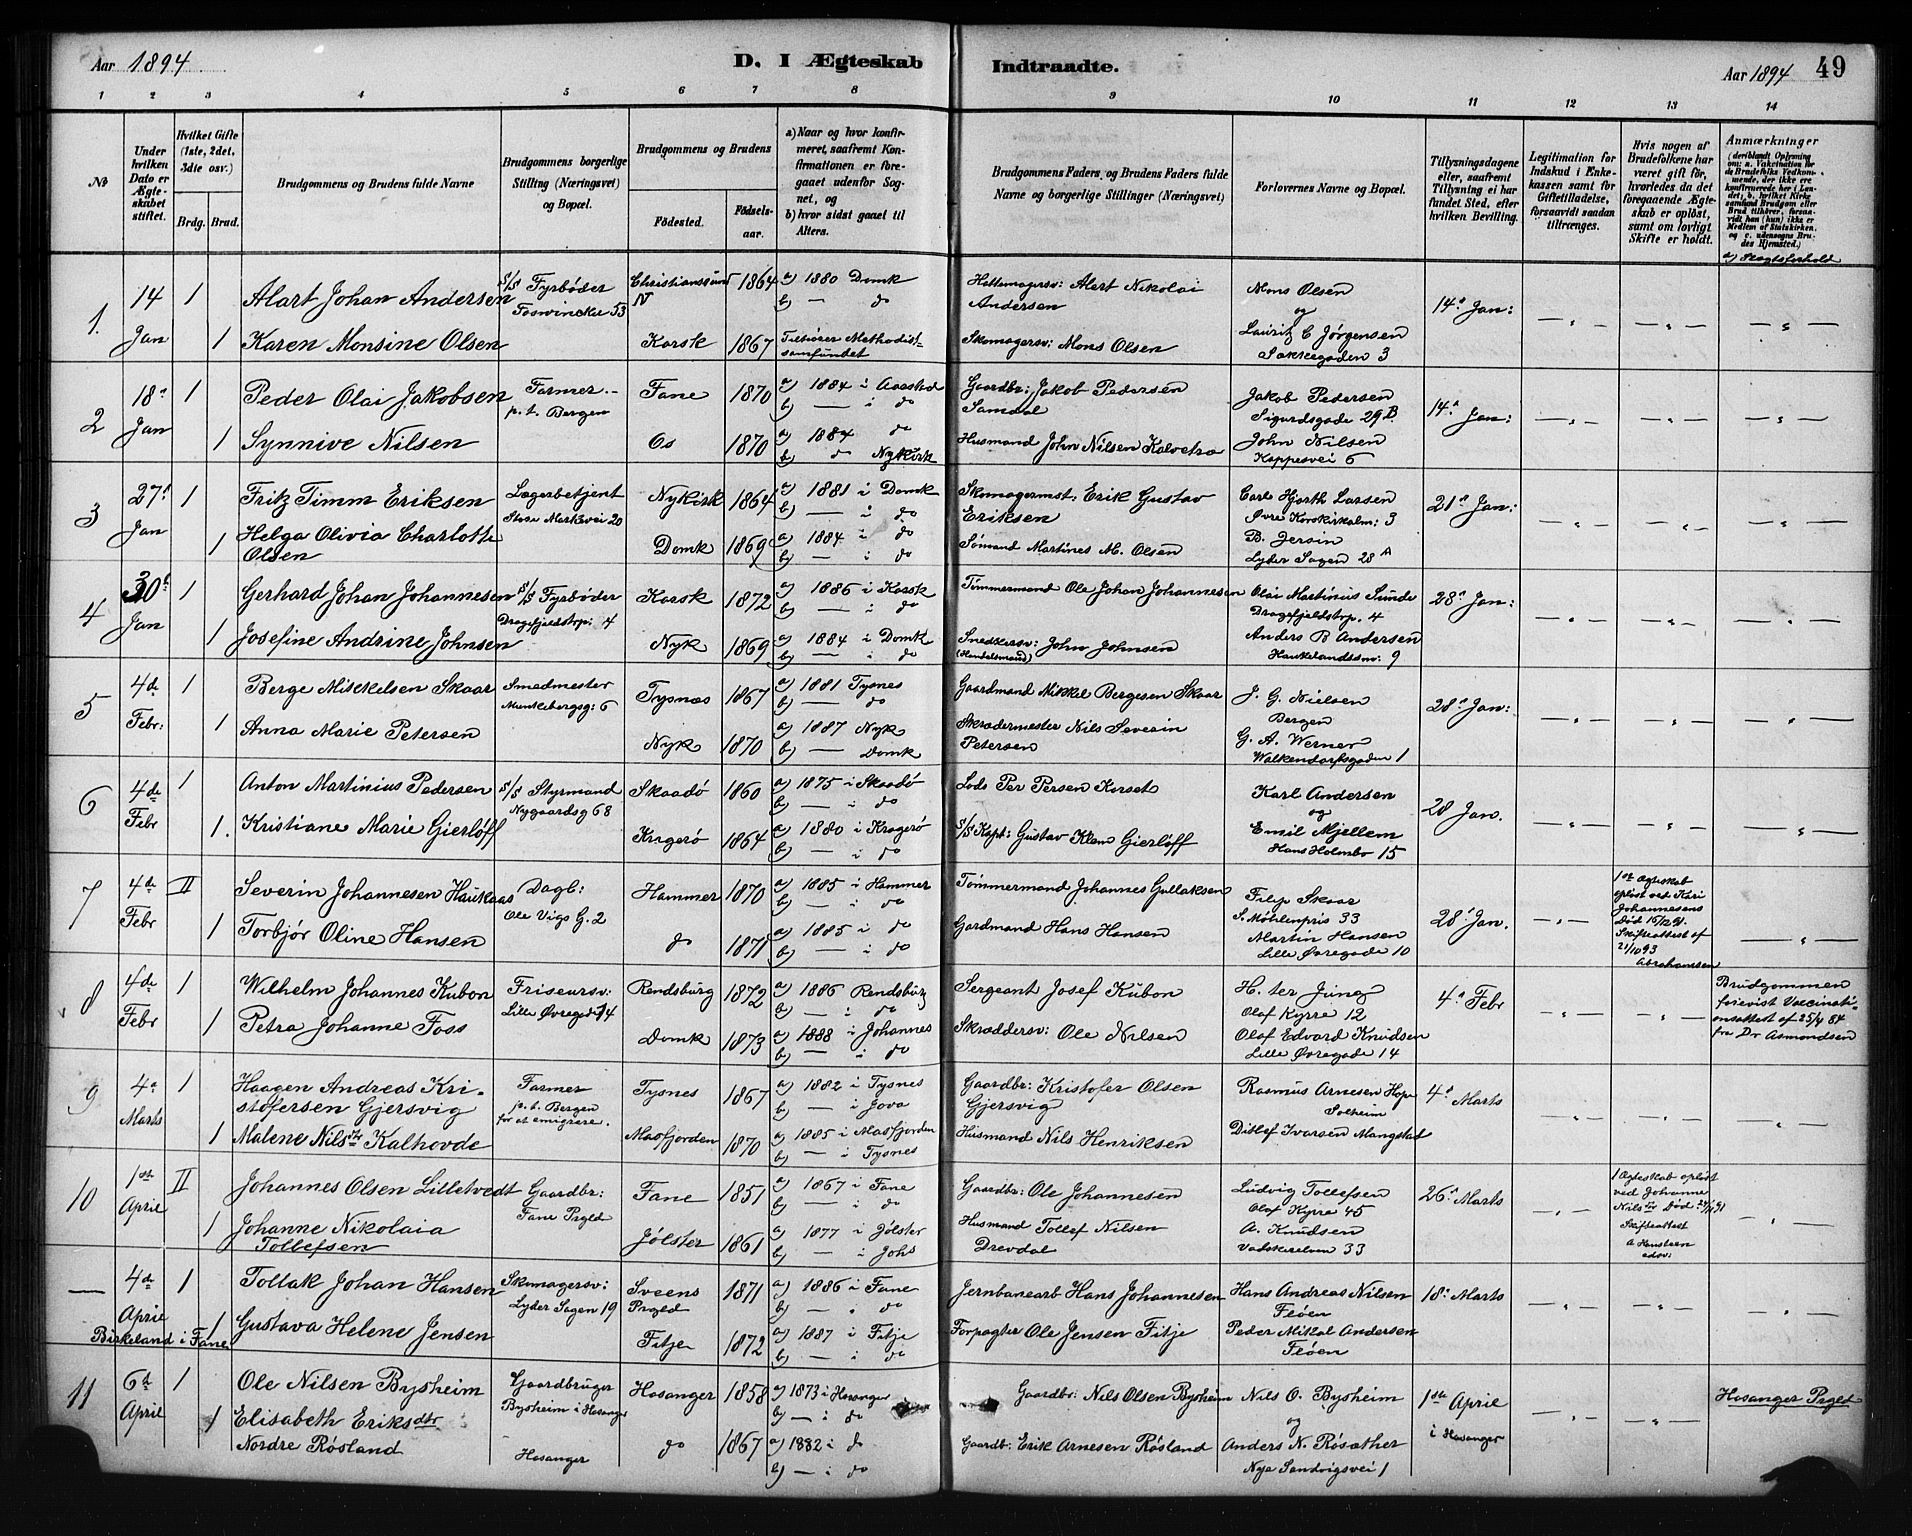 Aar 1894
D. I Ægteskab Indtraadte.
Aar 1894 49
1 2 3 4 5 6 7 8 9 10 11 12 13 14
No
Under hvilken Dato er Ægteskabet stiftet.
Hvilket Gifte (1ste, 2det, 3die osv.)
Brdg. Brud.
Brudgommens og Brudens fulde Navne
Brudgommens borgerlige Stilling (Næringsvei) og Bopæl.
Brudgommens og Brudens
Födested.
Födselsaar.
a) Naar og hvor konfirmeret, saafremt Konfirmationen er foregaaet udenfor Sognet, og
b) hvor sidst gaaet til Alters.
Brudgommens Faders, og Brudens Faders fulde Navne og borgerlige Stillinger (Næringsvei)
Forlovernes Navne og Bopæl.
Tillysningsdagene eller, saafremt Tillysning ei har fundet Sted, efter hvilken Bevilling.
Legitimation for Indskud i Enkekassen samt for Giftetilladelse, forsaavidt saadan tiltrænges.
Hvis nogen af Brudefolkene har været gift för, hvorledes da det foregaaende Ægteskab er oplöst, samt om lovligt Skifte er holdt.
Anmærkninger
(deriblandt Oplysning om: a. Vakcination for de Brudefolks Vedkommende, der ikke ere konfirmerede her i Landet, b. hvilket Kirkesamfund Brudgom eller Brud tilhörer, forsaavidt han (hun) ikke er Medlem af Statskirken, og c. udensogns Brudes Hjemsted.)
a) Slagtsforhold
1. 14 Jan 1 Alart Johan Andersen S/S Fyrbøder Christianssund N 1864 a) 1880 Domk b) — do
Hattemagersv: Alert Nikolai Andersen Mons Olsen og 14de Jan:
1 Karen Monsine Olsen Korsk 1867 Tilhører Methodistsamfundet
Skomagersv: Mons Olsen Lauritz C Jørgensen Sakregaden 3
2 18de Jan 1 Peder Olai Jakobsen Farmer p. t. Bergen Fane 1870 a) 1884 i Aasted b) — i do
Gaardbr: Jakob Pedersen Samdal Jakob Pedersen Sigurdsgade 29 B. 14de Jan:
1 Synnive Nilsen Os 1870 a) 1884 do b) do Nykirk
Husmand John Nilsen Kalvetra John Nilsen Kappesvei 6
3 27de Jan 1 Fritz Timm Eriksen Lagerbetjent Store Markevei 20 Nykirk 1864 a) 1881 i Domk b) — i do
Skomagermst: Erik Gustav Eriksen Carl Hjorth Larsen Øvre Korskirkalm: 3 21de Jan:
1 Helga Olivia Charlotte Olsen Domk 1869 a) 1884 i do b) — i do
Sømand Martines M. Olsen B. Jersin Lyder Sagen 28 A
4 30te Jan 1 Gerhard Johan Johannesen S/S Fyrbøder Dragefjeldstrp: 4 Korsk 1872 a) 1886 i Korsk b) — i do
Tømmermand Ole Johan Johannesen Olai Martinius Sunde Dragefjeldstrp. 4 28de Jan:
1 Josefine Andrine Johnsen Nyk 1869 a) 1884 i Domk b) — i do
Smedkersv: (Handelsmand) John Johnsen Anders B Andersen Haukelandsv: 9
5 4de Febr: 1 Berge Mikkelsen Skaar Smedmester Munkebergsg: 6 Tysnæs 1867 a) 1881 Tysnes b) — do
Gaardmand Mikkel Bergesen Skaar J. G. Nielsen Bergen 28de Jan:
1 Anna Marie Petersen Nyk 1870 a) 1887 Nyk b) — Domk
Skradermester Nils Severin Petersen G. A. Werner Walkendorfsgaden 1
6 4de Febr 1 Anton Martinius Pedersen S/S Styrmand Nygaardsg 68 Skaadø 1860 a) 1875 i Skaadø b) — i do
Lods Per Persen Korset Karl Andersen og 28 Jan.
1. Kristiane Marie Gierløff Kragerø 1864 a) 1880 i Kragerø b) — i do
S/S Kapt: Gustav Klem Gierløff Emil Mjellem Hans Holmbo 15
7 4de Febr II Severin Johannesen Haukaas Dagl: Ole Vigs G. 2 Hammer 1870 a) 1885 i Hammer b) — i do
Tømmermand Johannes Gullaksen Filip Skaar S. Møhlenpris 33 28de Jan.
1ste Ægteskab opløst ved Kari Johannesens Død 16/12 91. Skifteattest af 21/10 93 Abrahamsen
1 Torbjør Oline Hansen do 1871 a) 1885 i do b) — i do
Gardmand Hans Hansen Martin Hansen Lille Øvregade 10
8 4de Febr 1 Wilhelm Johannes Kubon Friseursv: Lille Øvregade 14 Rendsburg 1872 a) 1886 Rendsburg b) — do
Sergeant Josef Kubon H. ter Jung Olaf Kyrre 12 4de Febr
Brudgommen forevist Vaccinationsattest af 25/4 84 fra Dr Asmundsen
1 Petra Johanne Foss Domk 1873 a) 1888 i Johannes b) — i do
Skræddersv: Ole Nilsen Olaf Edvard Knudsen Lille Øvregade 14
9 4de Marts 1 Haagen Andreas Kristofersen Gjersvig Farmer p. t. Bergen for at emigrere. Tysnes 1867 a) 1882 i Tysnes b) — i Iova
Gaardbr: Kristofer Olsen Gjersvig Rasmus Arnesen Hope Solheim 4de Marts
1 Malene Nilsdtr Kalhovde Masfjorden 1870 a) 1885 i Masfjorden b) — i Tysnes
Husmand Nils Henriksen Ditlef Ivarsen Mangstad
10 1ste April II Johannes Olsen Lilletvedt Gaardbr: Fane Prgld Fane 1851 a) 1867 i Fane b) — i do
Gaardbr: Ole Johannesen Ludvig Tollefsen Olaf Kyrre 45 26de Marts
1 Ægteskab opløst ved Johanne Nilsdtr Død 24/1 91 Skifteattest
1 Johanne Nikolaia Tollefsen Jølster 1861 a) 1877 i Jølster b) — i Johs
Husmand Tollef Nilsen Drevdal A. Knudsen Vadskerelven 33
— 4de April 1 Tollak Johan Hansen Skomagersv: Lyder Sagen 19 Sveens Prgld 1871 a) 1886 i Fane b) — do
Jernbanearb Hans Johannesen Hans Andreas Nilsen Fløen 18de Marts
Birkeland i Fane 1 Gustava Helene Jensen Fitje 1872 a) 1887 i Fitje b) — i do
Forpagter Ole Jensen Fitje Peder Mikal Andersen Fløen
11 6te April 1 Ole Nilsen Bysheim Gaardbruger Bysheim i Hosanger Hosanger 1858 a) 1873 i Hosanger b) — i do
Gaardbr: Nils Olsen Bysheim Nils O. Bysheim og 1ste April i Hosanger Hosanger Prgld
1 Elisabeth Eriksdtr Nordre Røsland Hosanger do 1867 a) 1882 i do b) — i do
Gaardb: Erik Arnesen Røsland Anders N. Røsæther Nye Sandvigsvei 1